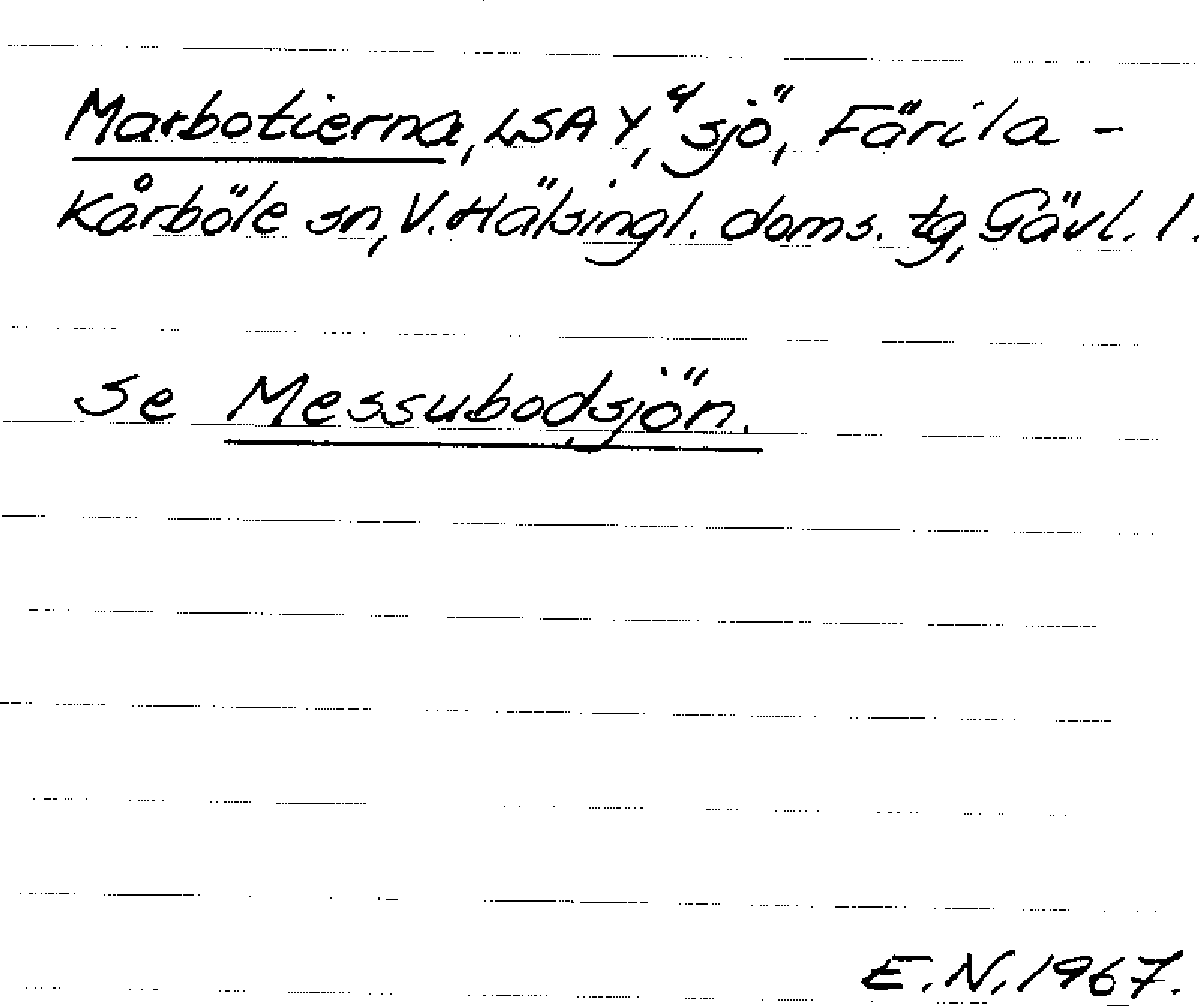 Marbotierna, LSA Y, "sjö", Färila -
Kårböle sn, V. Hälsingl. doms. tg, Gävl. l.
se Messubodsjön.
E.N. 1967.